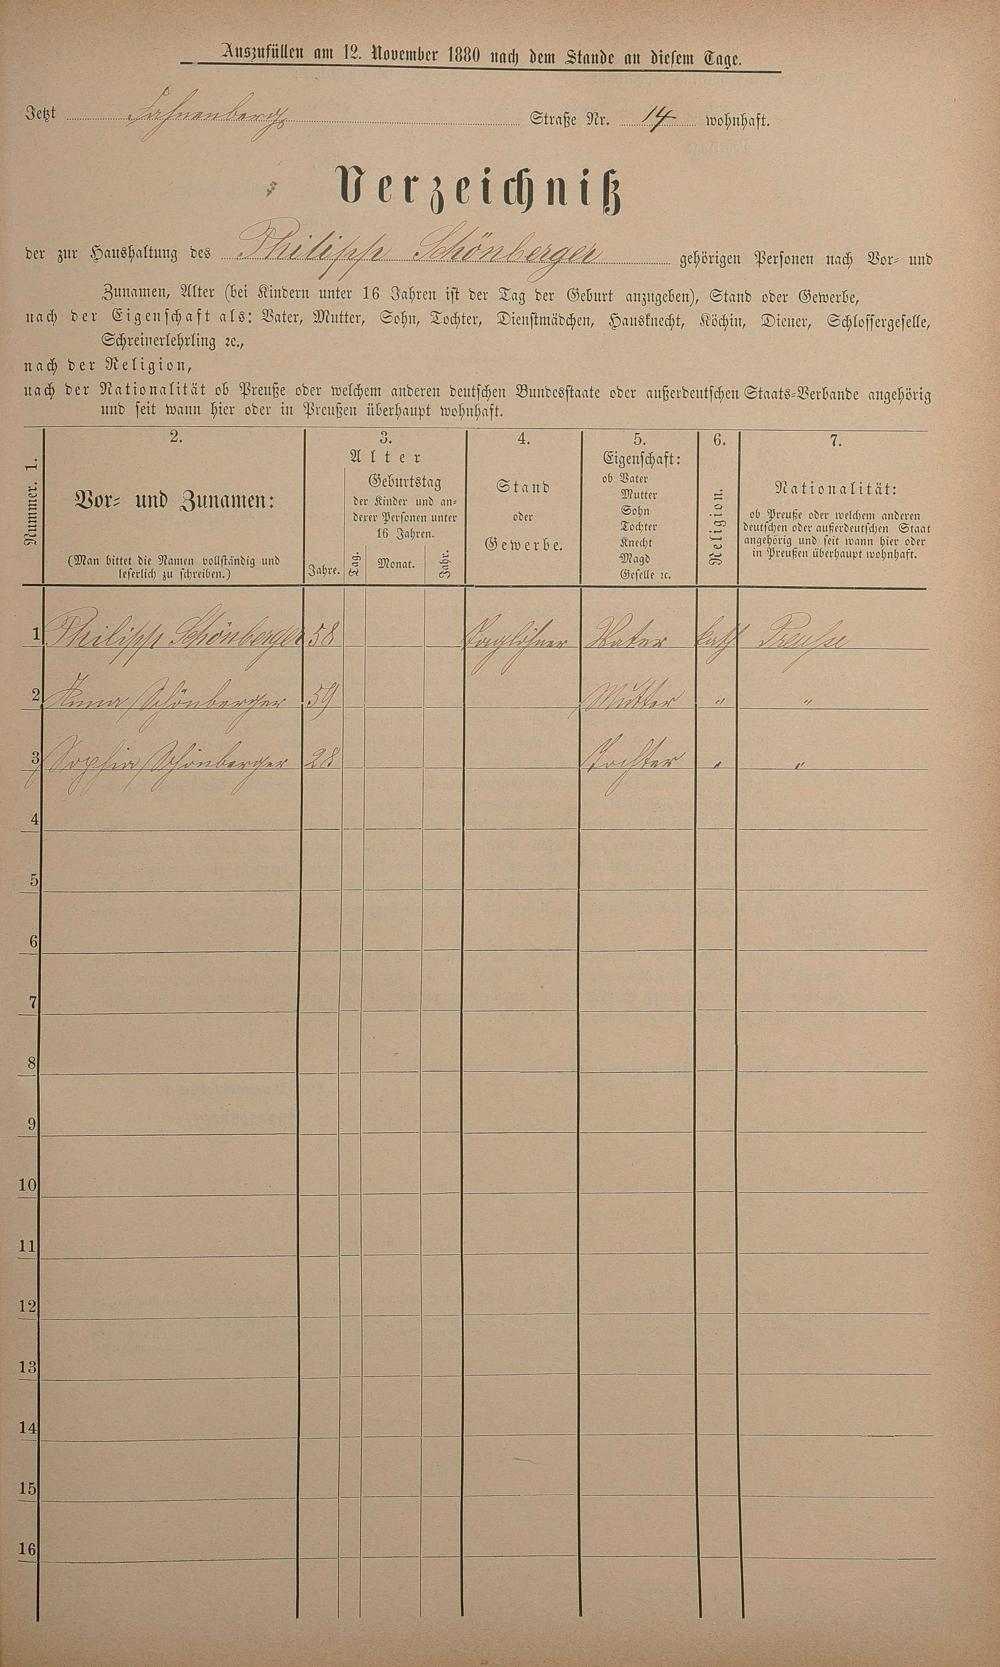 Auszufüllen am 12. November 1880 nach dem Stande an diesem Tage.
Jetzt Lahnenberg Straße Nr. 14 wohnhaft.
Verzeichniß
der zur Haushaltung des Philipp Schönberger gehörigen Personen nach Vor- und
Zunamen, Alter (bei Kindern unter 16 Jahren ist der Tag der Geburt anzugeben), Stand oder Gewerbe,
nach der Eigenschaft als: Vater, Mutter, Sohn, Tochter, Dienstmädchen, Hausknecht, Köchin, Diener, Schlossergeselle,
Schreinerlehrling ꝛc.,
nach der Religion,
nach der Nationalität ob Preuße oder welchem anderen deutschen Bundesstaate oder außerdeutschen Staats-Verbande angehörig
und seit wann hier oder in Preußen überhaupt wohnhaft.
Nummer. 1.
2.
Vor- und Zunamen:
(Man bittet die Namen vollständig und
leserlich zu schreiben.)
3.
Alter
Geburtstag
der Kinder und an-
derer Personen unter
16 Jahren.
Jahre. Tag. Monat. Jahr.
4.
Stand
oder
Gewerbe.
5.
Eigenschaft:
ob Vater
Mutter
Sohn
Tochter
Knecht
Magd
Geselle ꝛc.
6.
Religion.
7.
Nationalität:
ob Preuße oder welchem anderen
deutschen oder außerdeutschen Staat
angehörig und seit wann hier oder
in Preußen überhaupt wohnhaft.
1 Philipp Schönberger 58 Taglöhner Vater kath Preuße
2 Anna Schönberger 59 Mutter " "
3 Sophia Schönberger 28 Tochter " "
4
5
6
7
8
9
10
11
12
13
14
15
16